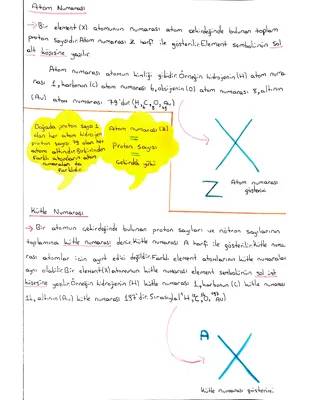 Atom Numarası
→ Bir element(X) atomunun numarası atom çekirdeğinde bulunan toplam
proton sayısıdır. Atom numarası Z harfi ile gösterilir. Element sembolünün sol
alt köşesine yazılır.
Atom numarası atomun kimliği gibidir. Örneğin hidrojenin(H) atom numa
rası 1, karbonun(C) atom numarası 6, oksijenin(O) atom numarası 8, altının
(Au) atom numarası 79'dur.(₁H, ₆C, ₈O, ₇₉Au)
Doğada proton sayısı 1
olan her atom hidrojen
proton sayısı 79 olan her
atom altındır. Birbirinden
farklı atomların atom
numaraları da
farklıdır.
Atom numarası (Z)
=
Proton sayısı
=
Çekirdek yükü
X
Z
Atom numarası
gösterimi
Kütle Numarası
→ Bir atomun çekirdeğinde bulunan proton sayıları ve nötron sayılarının
toplamına kütle numarası denir. Kütle numarası A harfi ile gösterilir. Kütle numa
rası atomlar için ayırt edici değildir. Farklı element atomlarının kütle numaraları
aynı olabilir. Bir element(X) atomunun kütle numarası element sembolünün sol üst
köşesine yazılır. Örneğin hidrojenin (H) kütle numarası 1, karbonun (C) kütle numarası
12, altının(Au) kütle numarası 197'dir. Sırasıyla(
A
X
Kütle numarası gösterimi